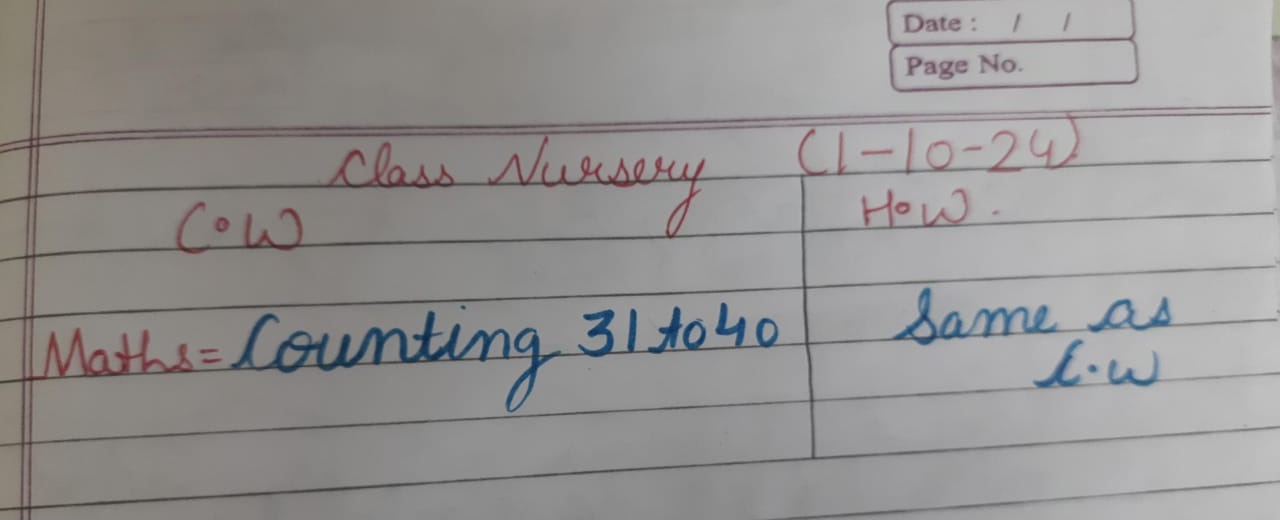 Date :   /   /
Page No.
Class Nursery (1-10-24)
C.W H.W.
Maths= Counting 31 to 40 Same as
C.W